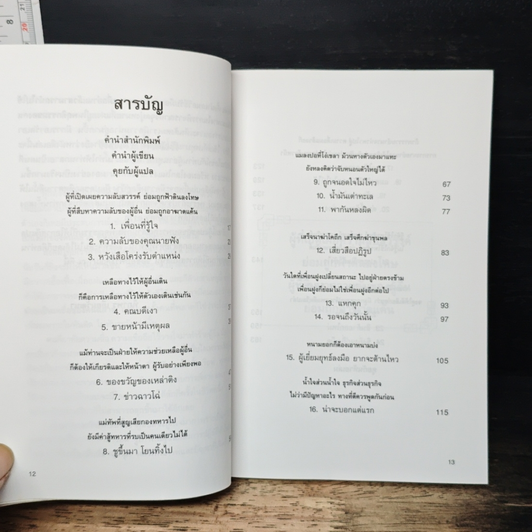 สารบัญ
คำนำสำนักพิมพ์
คำนำผู้เขียน
คุยกับผู้แปล
ผู้ที่เปิดเผยความลับสวรรค์ ย่อมถูกฟ้าดินลงโทษ
ผู้ที่สืบหาความลับของผู้อื่น ย่อมถูกอาฆาตแค้น
1. เพื่อนที่รู้ใจ
2. ความลับของคุณนายฟัง
3. หวังเสือโคร่งรับตำแหน่ง
เหลือทางไว้ให้ผู้อื่นเดิน
ก็คือการเหลือทางไว้ให้ตัวเองเดินเช่นกัน
4. คณบดีเงา
5. ขายหน้ามีเหตุผล
แม้ท่านจะเป็นฝ่ายให้ความช่วยเหลือผู้อื่น
ก็ต้องให้เกียรติและให้หน้าตา ผู้รับอย่างเพียงพอ
6. ของขวัญของเหล่าติง
7. ข่าวฉาวโฉ่
แม่ทัพที่สูญเสียกองทหารไป
ยังมีค่าสู้ทหารที่รบเป็นคนเดียวไม่ได้
8. ชูขึ้นมา โยนทิ้งไป
12
แมลงปอที่โง่เขลา ม้วนหางตัวเองมาแทะ
ยังหลงคิดว่าจับหนอนตัวใหญ่ได้
9. ถูกจนอดใจไม่ไหว 67
10. น้ำมันเต่าทะเล 73
11. พากันหลงผิด 77
เสร็จนาฆ่าโคถึก เสร็จศึกฆ่าขุนพล
12. เสี่ยวสือปฏิรูป 83
วันใดที่เพื่อนฝูงเปลี่ยนสถานะ ไปอยู่ฝ่ายตรงข้าม
เพื่อนฝูงก็ย่อมไม่ใช่เพื่อนฝูงอีกต่อไป
13. แหกคุก 93
14. รอจนถึงวันนั้น 97
หนามยอกก็ต้องเอาหนามบ่ง
15. ผู้เยี่ยมยุทธ์ลงมือ ยากจะต้านไหว 105
น้ำใจส่วนน้ำใจ ธุรกิจส่วนธุรกิจ
ไม่ว่ามีปัญหาอะไร ทางที่ดีควรพูดกันก่อน
16. น่าจะบอกแต่แรก 115
13